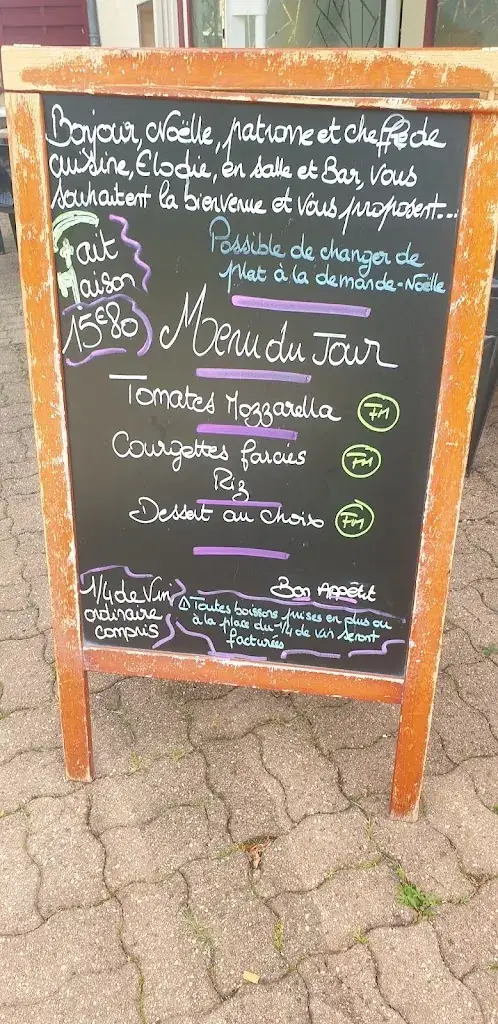 Bonjour, Noëlle, patronne et cheffe de
cuisine, Elodie, en salle et Bar, vous
souhaitent la bienvenue et vous proposent...
Fait
Maison
15€80
Possible de changer de
plat à la demande-Noëlle
Menu du Jour
Tomates Mozzarella FM
Courgettes farcies FM
Riz
Dessert au choix FM
Bon Appétit
1/4 de Vin
ordinaire
compris
⚠ Toutes boissons prises en plus ou
à la place du 1/4 de vin seront
facturées